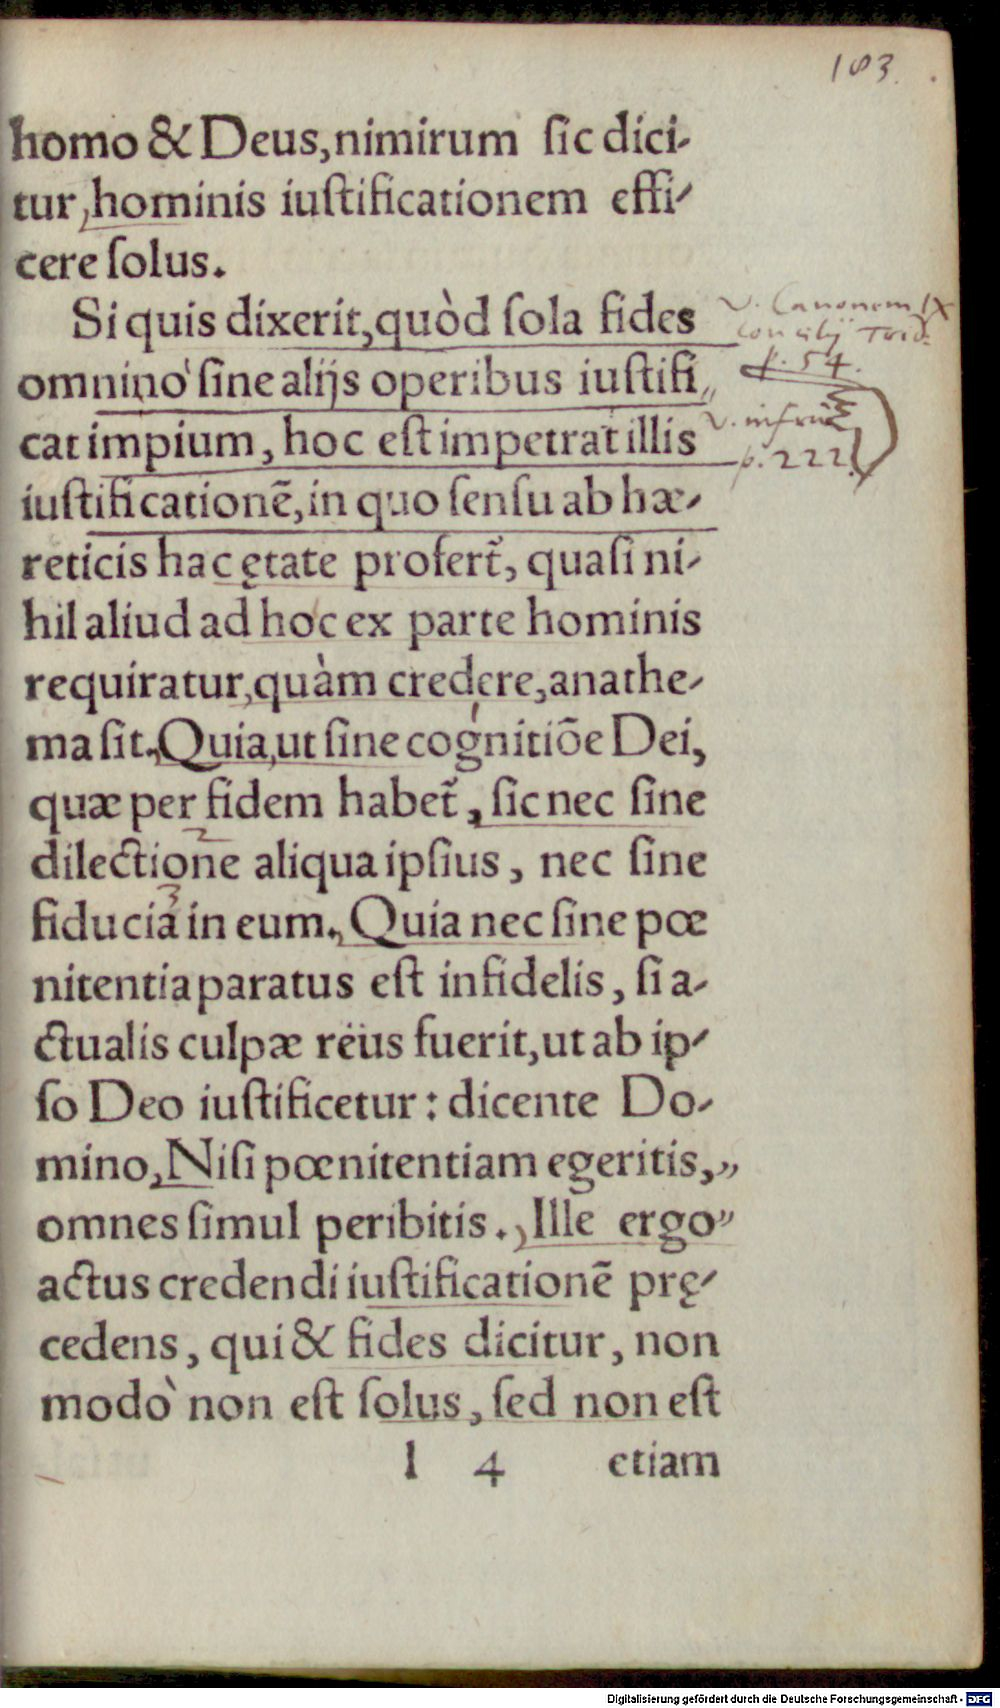 183.
homo & Deus, nimirum ſic dici-
tur, hominis iuſtificationem effi-
cere ſolus.
Si quis dixerit, quòd ſola fides
omnino ſine alijs operibus iuſtifi
cat impium, hoc eſt impetrat illis
iuſtificationē, in quo ſenſu ab hæ-
reticis hac ętate profert̄, quaſi ni-
hil aliud ad hoc ex parte hominis
requiratur, quàm credere, anathe-
ma ſit. Quia, ut ſine cognitiōe Dei,
quæ per fidem habet̄, ſic nec ſine
dilectione aliqua ipſius, nec ſine
fiducia in eum. Quia nec ſine pœ
nitentia paratus eſt infidelis, ſi a-
ctualis culpæ rëus fuerit, ut ab ip-
ſo Deo iuſtificetur: dicente Do-
mino, Niſi pœnitentiam egeritis, „
omnes ſimul peribitis. Ille ergo „
actus credendi iuſtificationē prę-
cedens, qui & fides dicitur, non
modò non eſt ſolus, ſed non eſt
l 4 etiam
v. Canonem IX
Concilij Trid.
p. 54.
v. infra
p. 222.
Digitalisierung gefördert durch die Deutsche Forschungsgemeinschaft - DFG